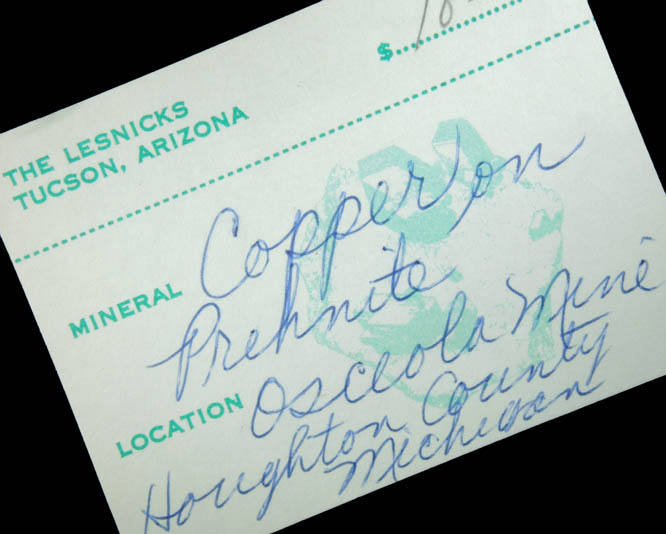 $
THE LESNICKS
TUCSON, ARIZONA
MINERAL Copper on
Prehnite
LOCATION Osceola Mine
Houghton County
Michigan